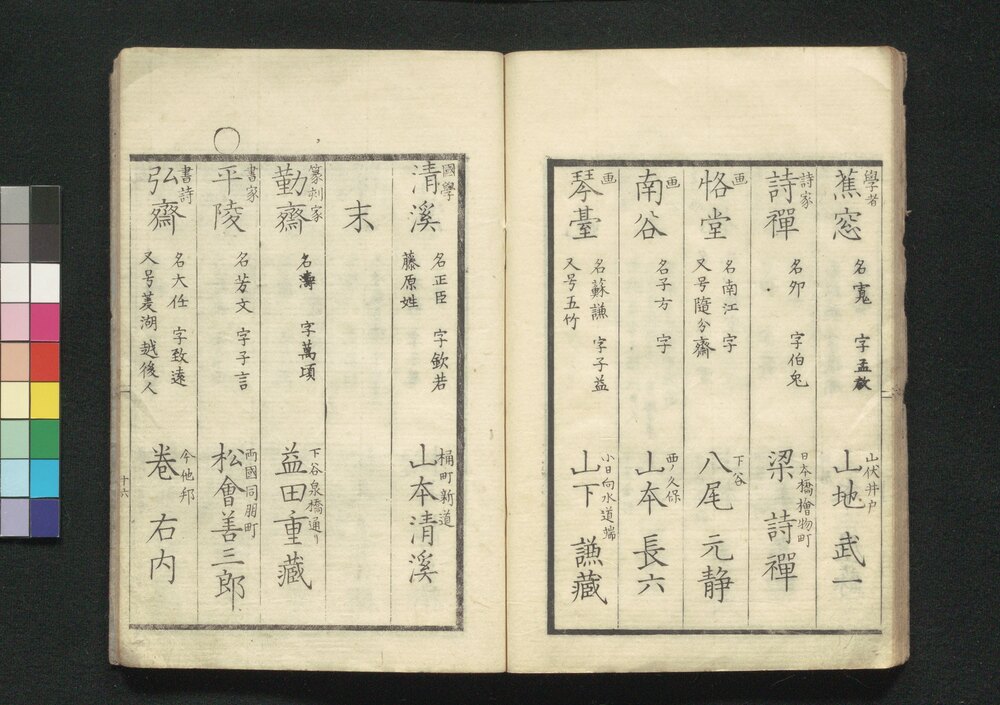 學者
蕉窓 名寬 字孟敬 山伏井戸 山地 武一
詩家
詩禪 名卯 字伯兔 日本橋檜物町 梁 詩禪
画
恪堂 名南江 字 下谷 八尾 元静
又号隨分齋
画
南谷 名子方 字 西ノ久保 山本 長六
画
琴臺 名蘇謙 字子益 小日向水道端 山下 謙藏
又号五竹
國學
清溪 名正臣 字欽若 桶町新道 山本清溪
藤原姓
末
篆刻家
勤齋 名濤 字萬頃 下谷泉橋通り 益田重藏
書家
平陵 名芳文 字子言 両國同朋町 松會善三郎
書詩
弘齋 名大任 字致遠 今他邦 卷 右内
又号菱湖 越後人
十六